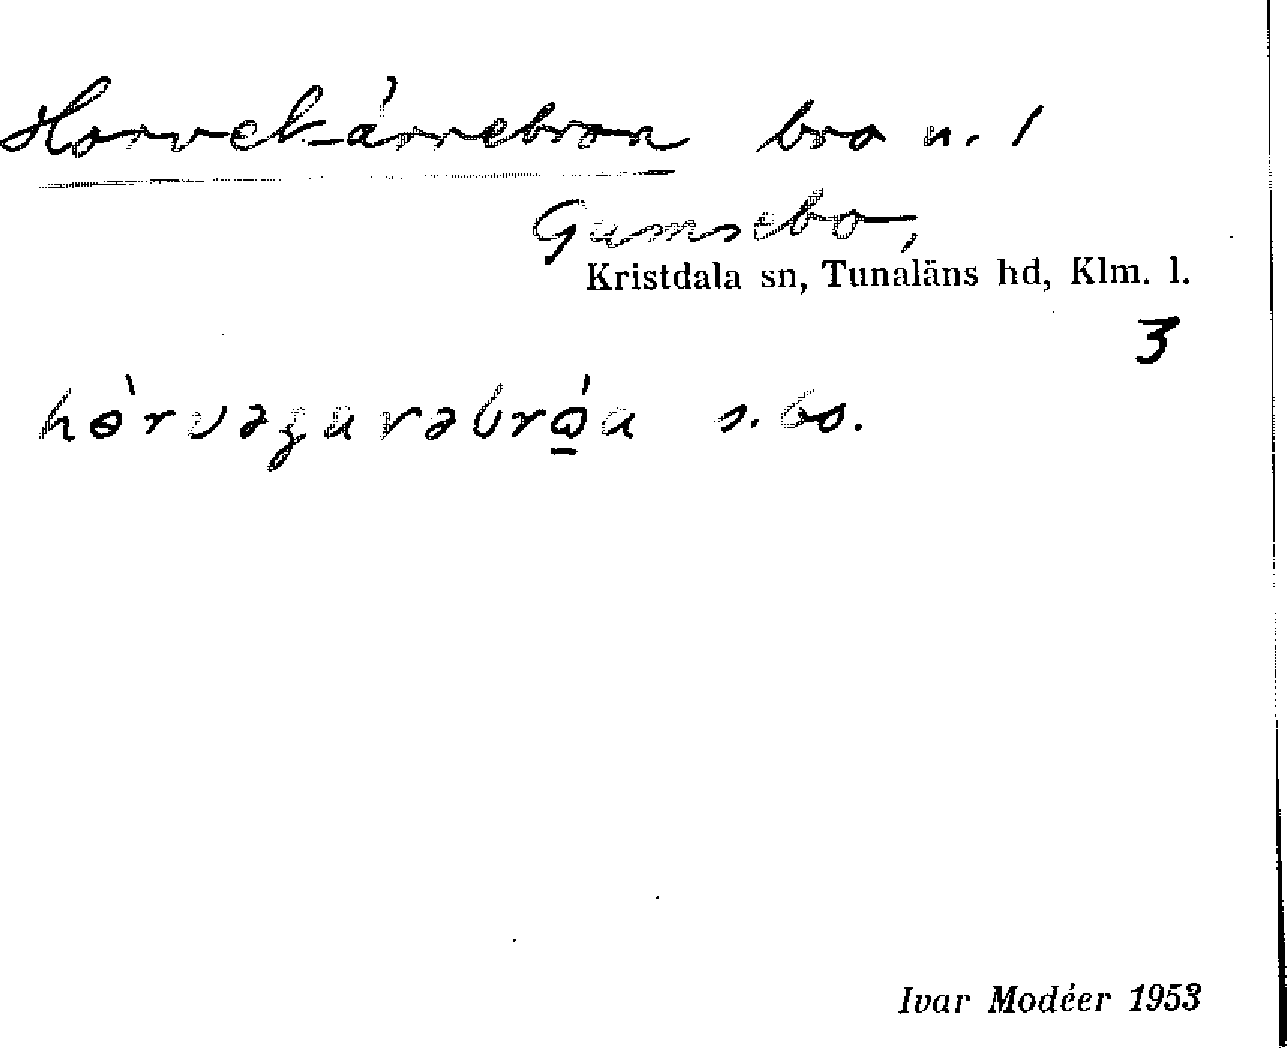 Horvekärrebron bro n. 1
Gumsebo,
Kristdala sn, Tunaläns hd, Klm. l.
3
s. bs.
Ivar Modéer 1953